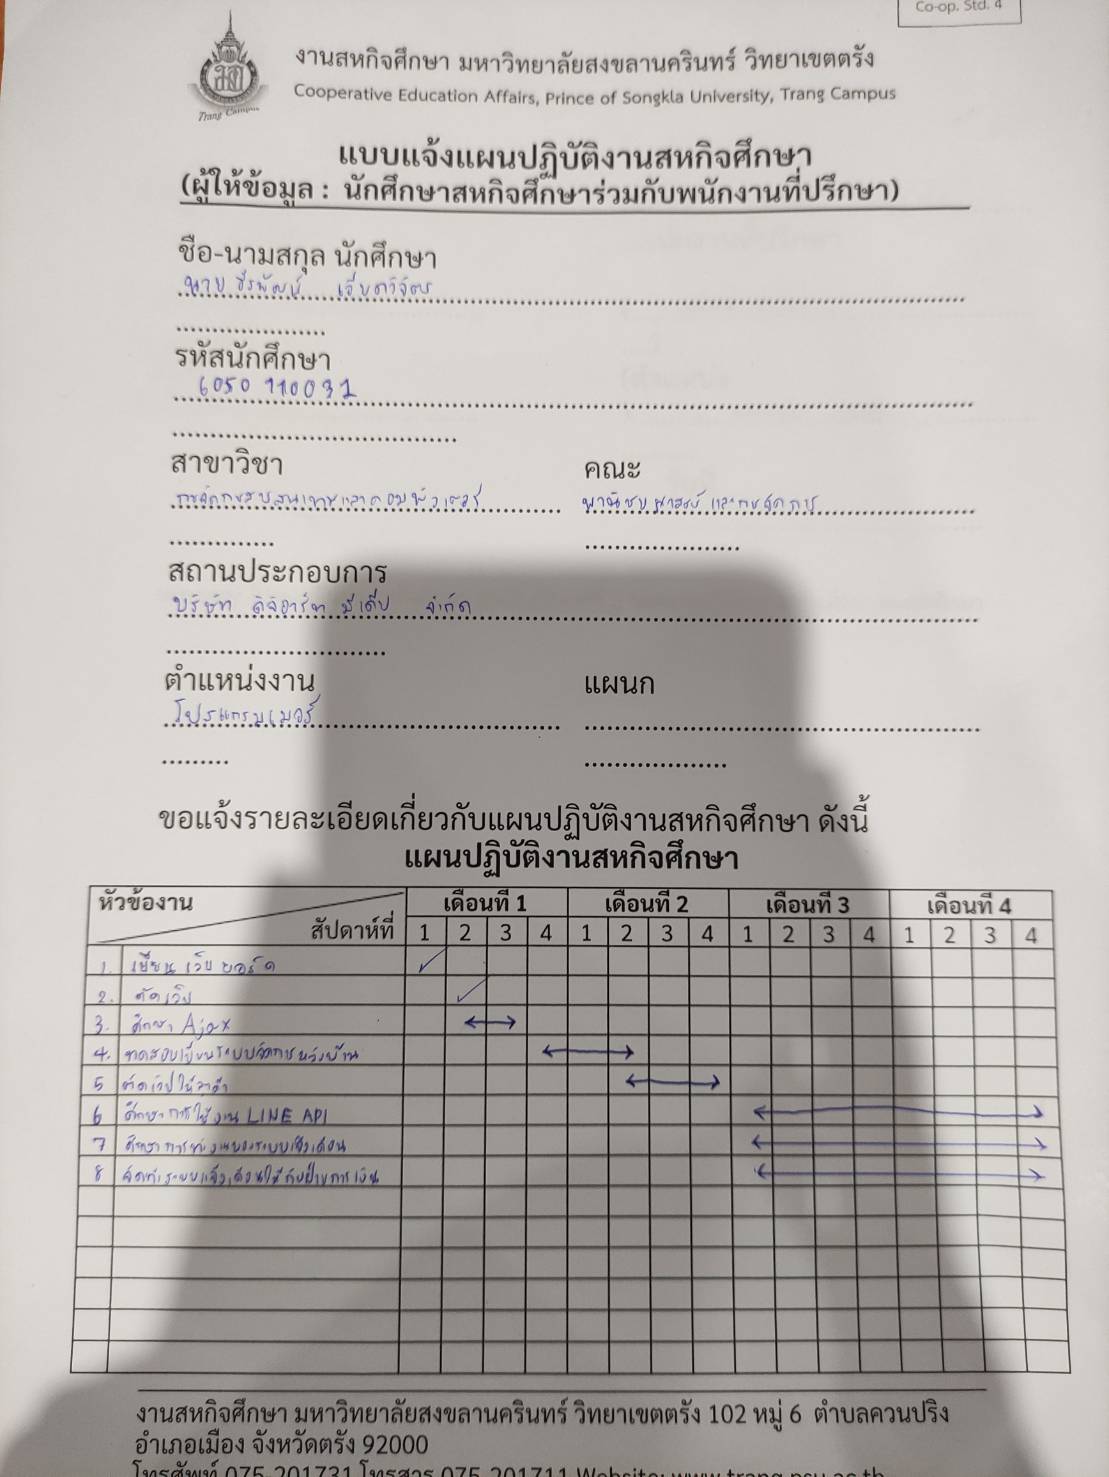 Co-op. Std. 4
Trang Campus
งานสหกิจศึกษา มหาวิทยาลัยสงขลานครินทร์ วิทยาเขตตรัง
Cooperative Education Affairs, Prince of Songkla University, Trang Campus
แบบแจ้งแผนปฏิบัติงานสหกิจศึกษา
(ผู้ให้ข้อมูล : นักศึกษาสหกิจศึกษาร่วมกับพนักงานที่ปรึกษา)
ชื่อ-นามสกุล นักศึกษา
นาย
รหัสนักศึกษา
6050110031
สาขาวิชา คณะ
การจัดการสารสนเทศและคอมพิวเตอร์ พาณิชยศาสตร์และการจัดการ
สถานประกอบการ
บริษัท ดิจิอาร์ท มีเดีย จำกัด
ตำแหน่งงาน แผนก
โปรแกรมเมอร์
ขอแจ้งรายละเอียดเกี่ยวกับแผนปฏิบัติงานสหกิจศึกษา ดังนี้
แผนปฏิบัติงานสหกิจศึกษา
หัวข้องาน เดือนที่ 1 เดือนที่ 2 เดือนที่ 3 เดือนที่ 4
สัปดาห์ที่ 1 2 3 4 1 2 3 4 1 2 3 4 1 2 3 4
1. เขียนเว็บบอร์ด
2. ตัดเว็บ
3. ศึกษา Ajax
4. ทดสอบเขียนระบบจัดการหลังบ้าน
5 ตัดเว็ปให้ลูกค้า
6 ศึกษาการใช้งาน LINE API
7 ศึกษาการทำงานของระบบแจ้งเตือน
8 จัดทำระบบแจ้งเตือนให้กับฝ่ายการเงิน
งานสหกิจศึกษา มหาวิทยาลัยสงขลานครินทร์ วิทยาเขตตรัง 102 หมู่ 6 ตำบลควนปริง
อำเภอเมือง จังหวัดตรัง 92000
โทรศัพท์ 075-201731 โทรสาร 075-201711 Website: www.trang.psu.ac.th